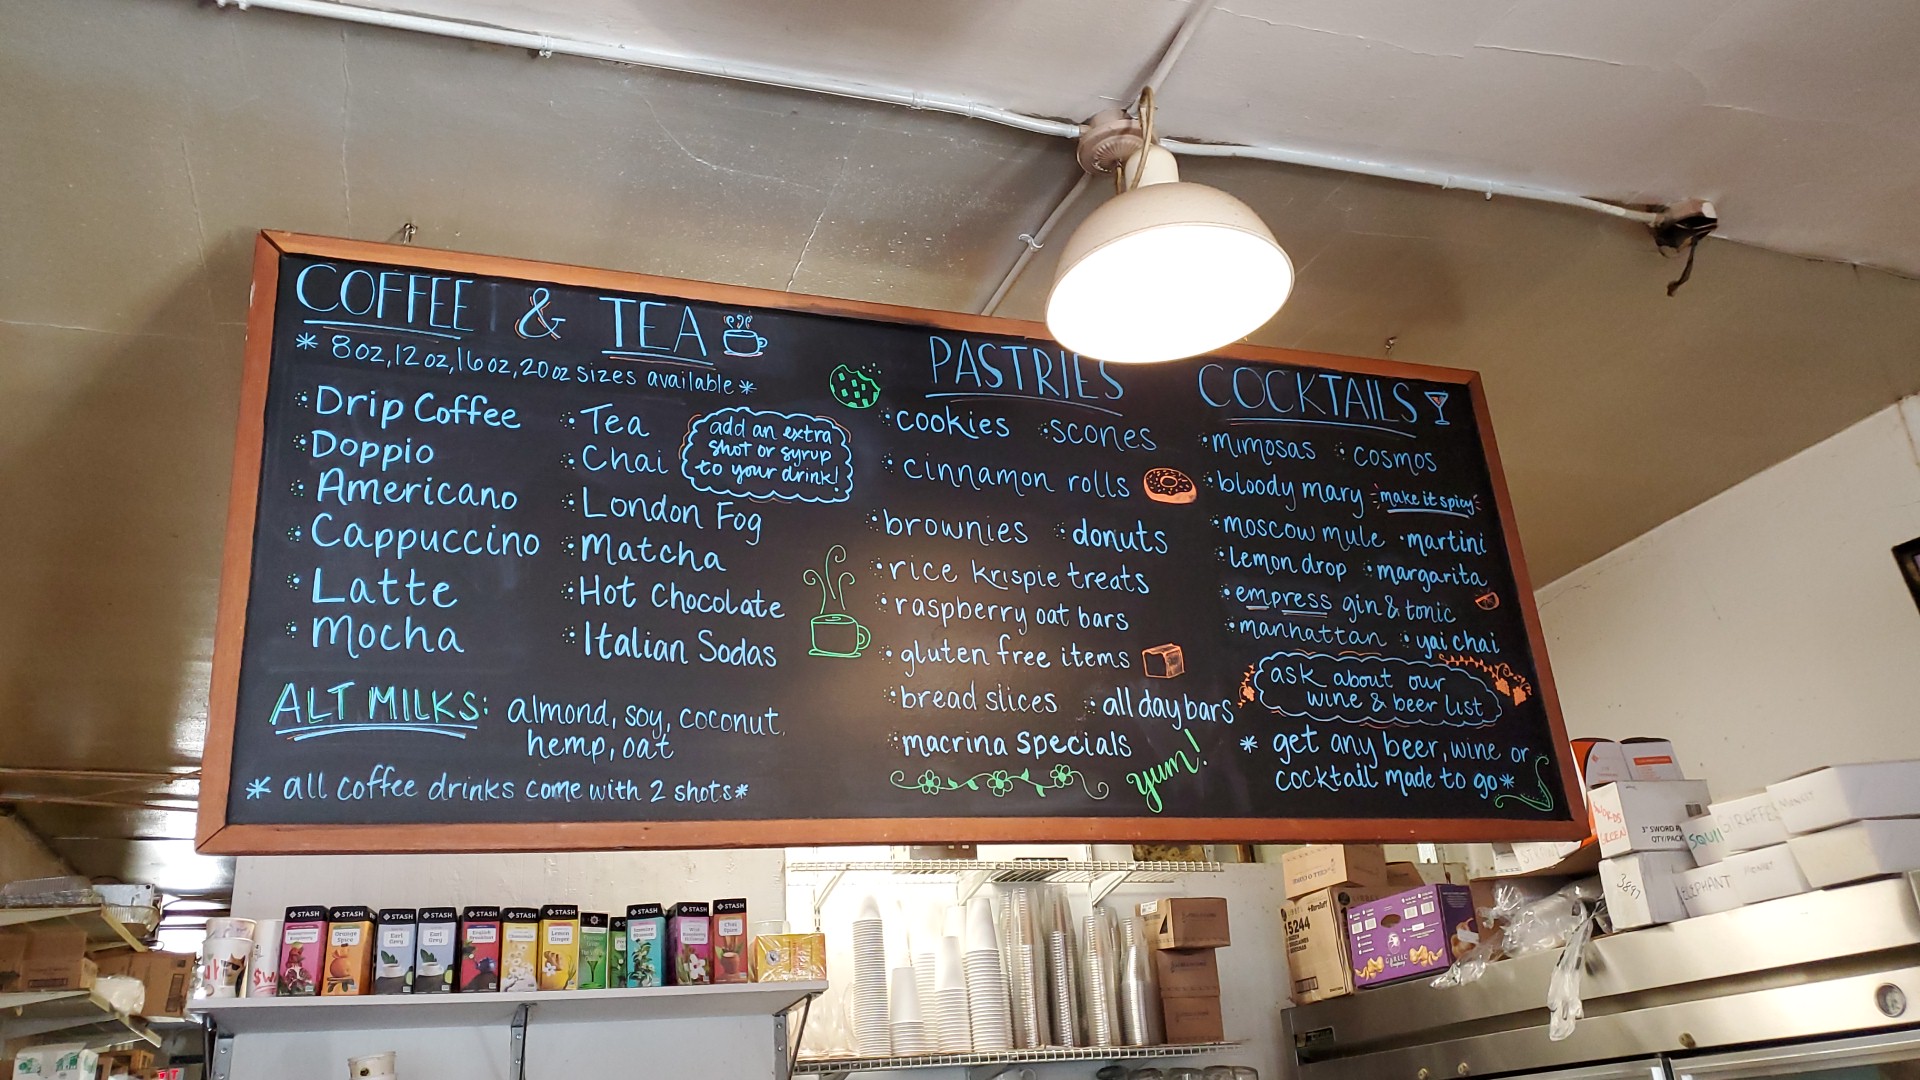 COFFEE & TEA
* 8oz, 12oz, 16oz, 20oz sizes available *
Drip Coffee
Doppio
Americano
Cappuccino
Latte
Mocha
Tea
Chai
London Fog
Matcha
Hot Chocolate
Italian Sodas
add an extra
shot or syrup
to your drink!
ALT MILKS: almond, soy, coconut,
hemp, oat
* all coffee drinks come with 2 shots *
PASTRIES
cookies scones
cinnamon rolls
brownies donuts
rice krispie treats
raspberry oat bars
gluten free items
bread slices all day bars
macrina specials
yum!
COCKTAILS
mimosas cosmos
bloody mary make it spicy
moscow mule martini
lemon drop margarita
empress gin & tonic
manhattan yai chai
ask about our
wine & beer list
* get any beer, wine or
cocktail made to go *
STASH
Orange
Spice
STASH
Earl
Grey
STASH
Earl
Grey
STASH
English
Breakfast
STASH
STASH
Lemon
Ginger
STASH
STASH
STASH
Chai
Spice
15244
GARLIC
3" SWORD
QTY/PACK
SQUI
GIRAFFE
MONKEY
3897
ELEPHANT
MONKEY